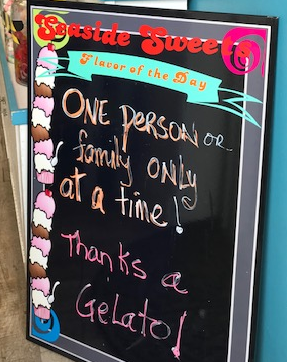 Seaside Sweets
Flavor of the Day
ONE PERSON OR
family ONLY
at a time!
Thanks a
Gelato!